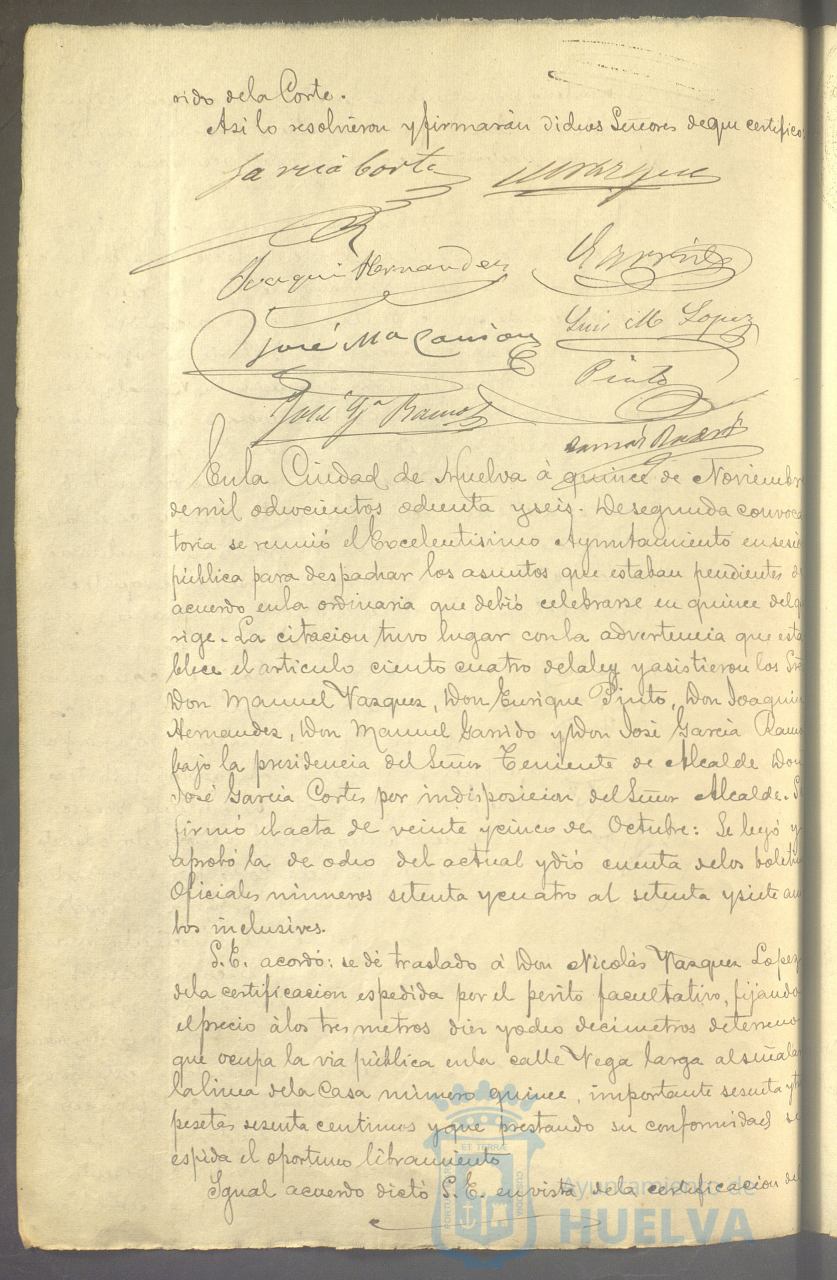 rido dela Corte.
Asi lo resolvieron y firmarán dichos Señores de que certifico:
Garcia Cortes Vazquez
Joaquin Hernandez Garrido
José Mª Luis M Lopez
Pinto
José Gª Ramos
En la Ciudad de Huelva á quince de Noviembre
de mil ochocientos ochenta y seis. De segunda convoca
toria se reunió el Excelentisimo Ayuntamiento en sesio
pública para despachar los asuntos que estaban pendientes d
acuerdo en la ordinaria que debió celebrarse en quince del q
rige. La citacion tuvo lugar con la advertencia que esta
blece el articulo ciento cuatro de la ley y asistieron los Sre
Don Manuel Vazquez, Don Enrique Pinto, Don Joaquin
Hernandez, Don Manuel Garrido y Don José Garcia Ramo
bajo la presidencia del Señor Teniente de Alcalde Don
José Garcia Cortes por indisposicion del Señor Alcalde. S
firmó el acta de veinte y cinco de Octubre: Se leyó y
aprobó la de ocho del actual y dió cuenta de los boleti
Oficiales números setenta y cuatro al setenta y siete am
bos inclusives.
S.E. acordó: se dé traslado á Don Nicolás Vazquez Lopez
de la certificacion espedida por el perito facultativo, fijando
el precio á los tres metros diez y ocho decimetros de terreno
que ocupa la via pública en la calle Vega larga al señalar
la linea de la Casa número quince, importante sesenta y t
pesetas sesenta centimos y que prestando su conformidad se
espida el oportuno libramiento
Igual acuerdo dictó S.E. en vista de la certificacion del
Ayuntamiento de
HUELVA